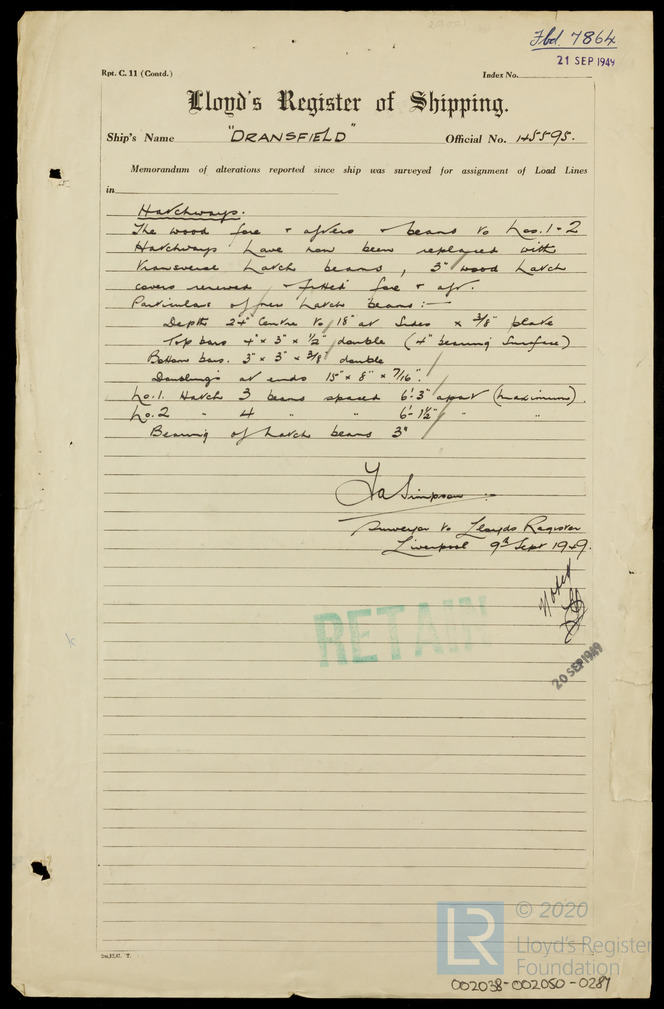 Fbd. 7864
21 SEP 1949
Rpt. C. 11 (Contd.)
Index No.
Lloyd's Register of Shipping.
Ship's Name "DRANSFIELD" Official No. 145595.
Memorandum of alterations reported since ship was surveyed for assignment of Load Lines
in
Hatchways.
The wood fore & afters & beams to Nos. 1 - 2
Hatchways have now been replaced with
transverse hatch beams, 3" wood hatch
covers renewed & fitted fore & aft.
Particulars of new hatch beams:-
Depths 24" Centre to 18" at sides x 3/8" plate
Top bars 4" x 3" x 1/2" double (4" bearing surface)
Bottom bars. 3" x 3" x 3/8" double
Doublings at ends 15" x 8" x 7/16".
No. 1. Hatch 3 beams spaced 6'-3" apart (maximum).
No. 2 " 4 " " 6'-1½" " "
Bearing of hatch beams 3"
Simpson
Surveyor to Lloyds Register
Liverpool 9th Sept 1949.
Noted
RETAIN
20 SEP 1949
LR
© 2020
Lloyd's Register
Foundation
002038-002050-0287